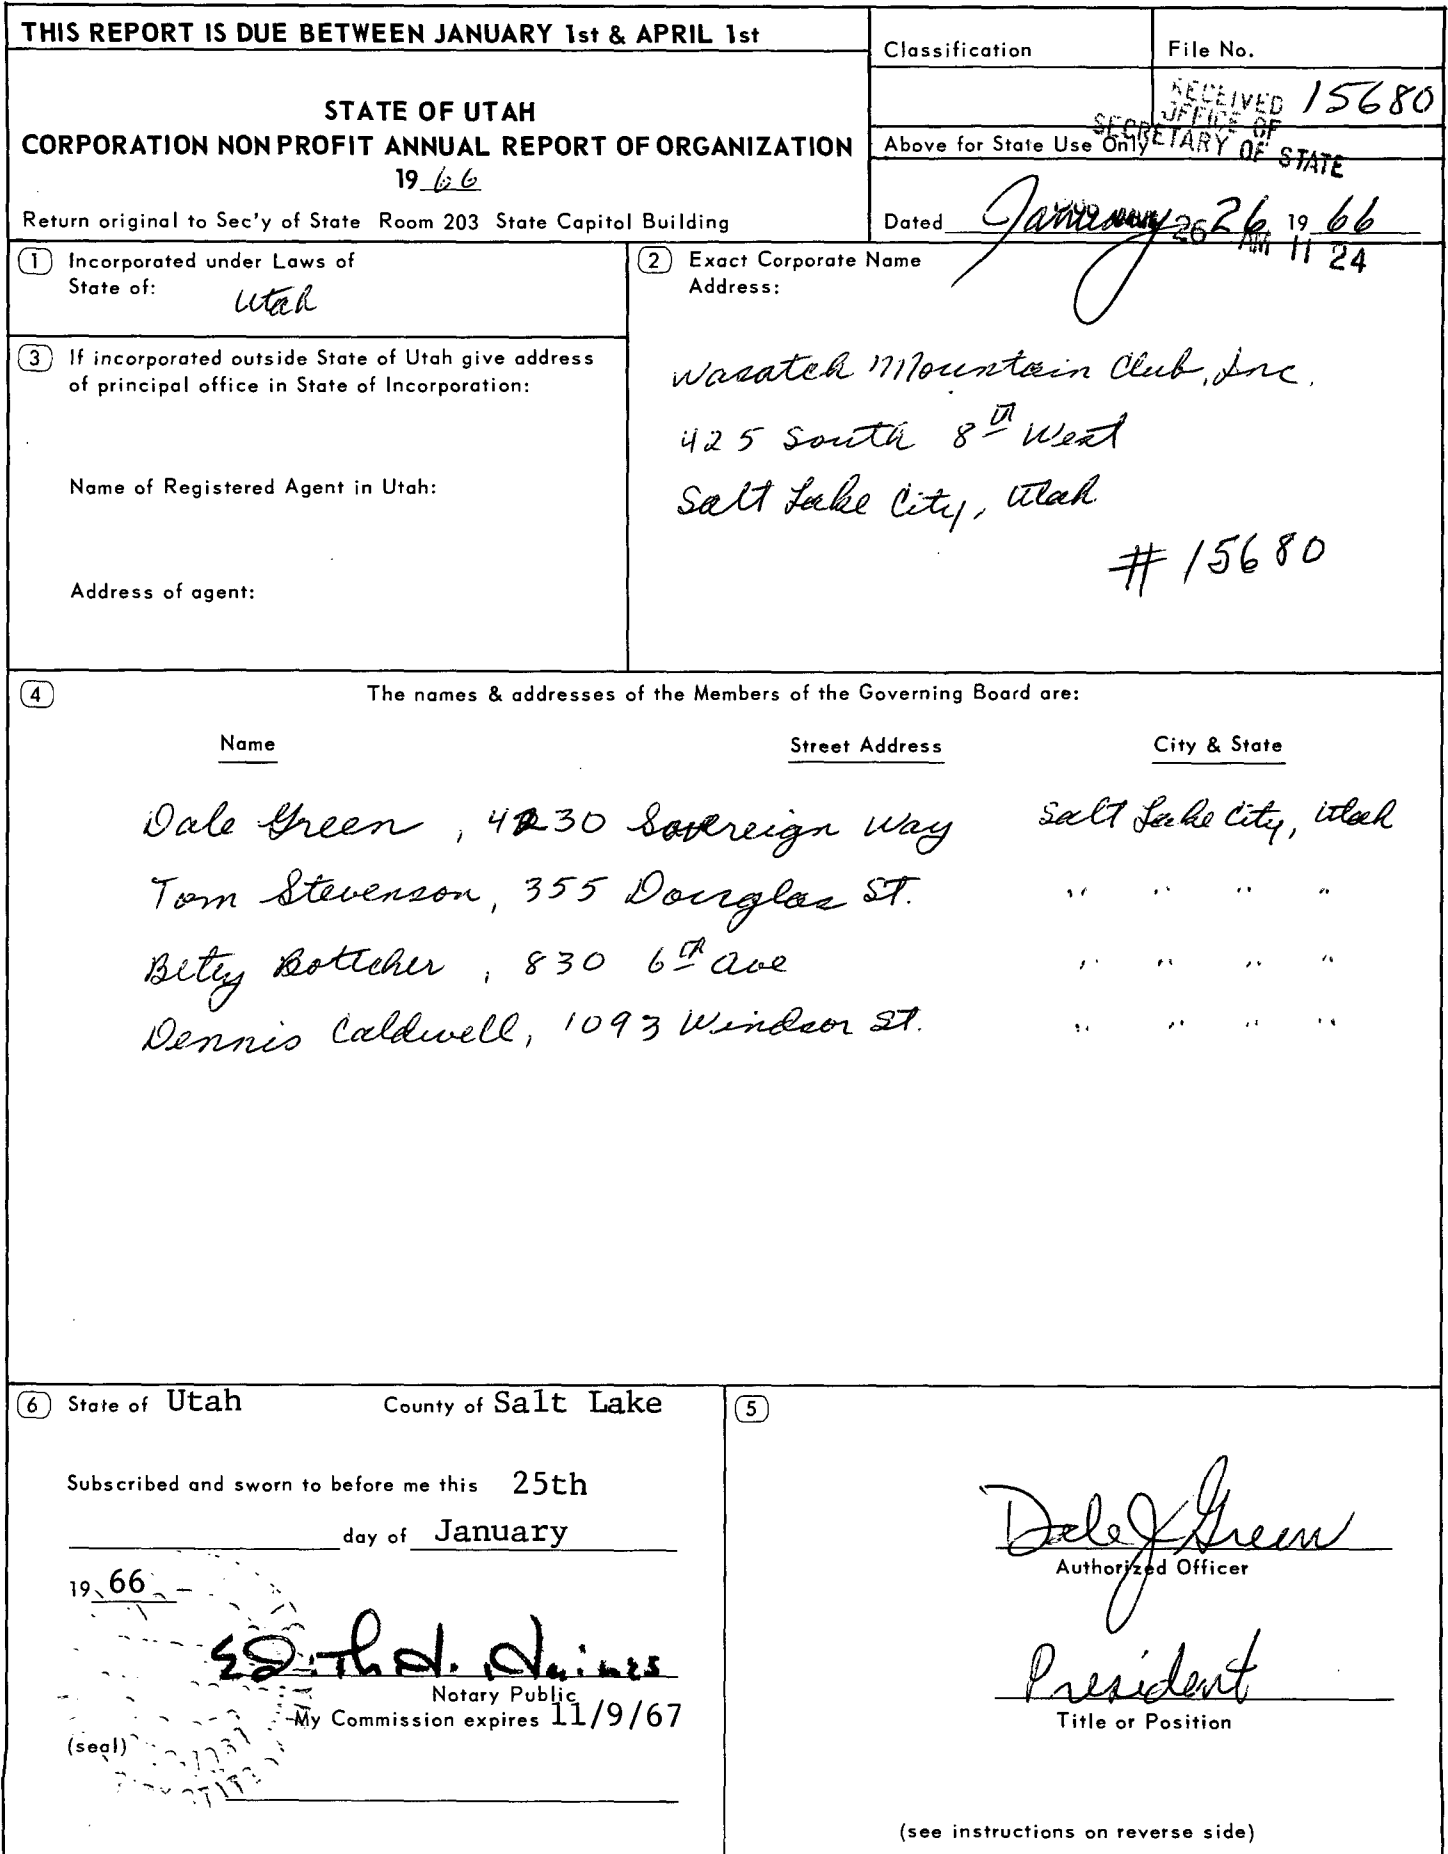 THIS REPORT IS DUE BETWEEN JANUARY 1st & APRIL 1st
Classification
File No.
15680
RECEIVED
OFFICE OF
SECRETARY OF STATE
STATE OF UTAH
CORPORATION NON PROFIT ANNUAL REPORT OF ORGANIZATION
1966
Above for State Use Only
Return original to Sec'y of State Room 203 State Capitol Building
Dated January 26 1966
26 AM 11 24
1 Incorporated under Laws of
State of:
Utah
2 Exact Corporate Name
Address:
Wasatch Mountain Club, Inc.
425 South 8th West
Salt Lake City, Utah
#15680
3 If incorporated outside State of Utah give address
of principal office in State of Incorporation:
Name of Registered Agent in Utah:
Address of agent:
4 The names & addresses of the Members of the Governing Board are:
Name Street Address City & State
Dale Green, 4230 Sovereign Way Salt Lake City, Utah
Tom Stevenson, 355 Douglas St. " " " "
Betty Bottcher, 830 6th Ave " " " "
Dennis Caldwell, 1093 Windsor St. " " " "
6 State of Utah County of Salt Lake
Subscribed and sworn to before me this 25th
day of January
1966
Notary Public
My Commission expires 11/9/67
(seal)
5
Dale J Green
Authorized Officer
President
Title or Position
(see instructions on reverse side)